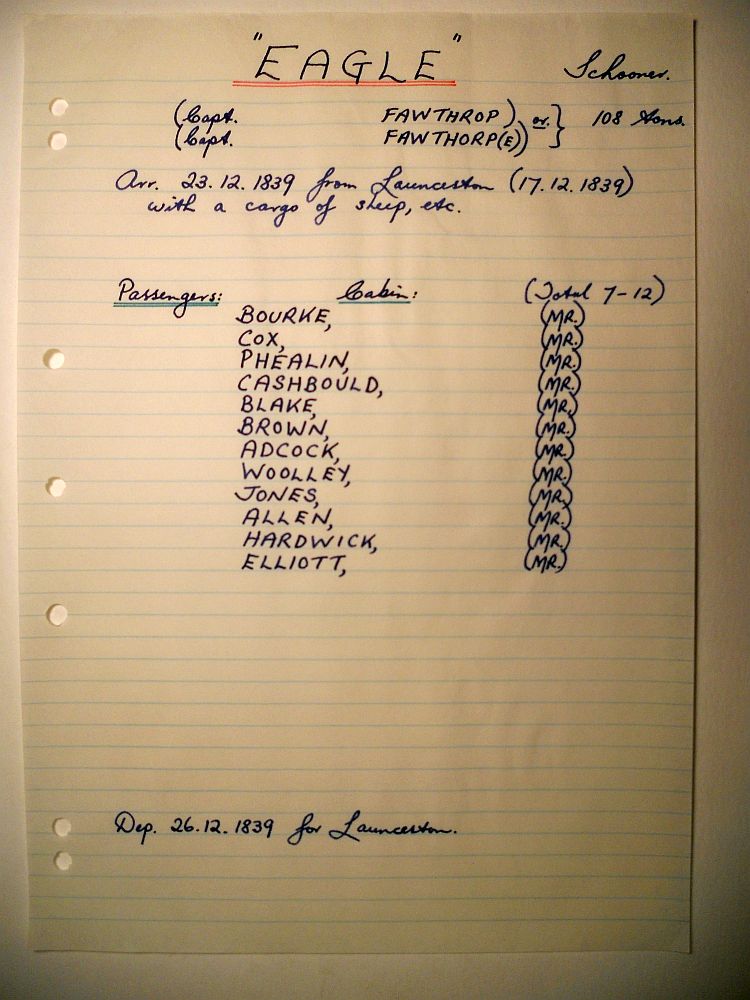 "EAGLE" Schooner.
(Capt. FAWTHROP) or. } 108 tons.
(Capt. FAWTHORP(E))
Arr. 23.12.1839 from Launceston (17.12.1839)
with a cargo of sheep, etc.
Passengers: Cabin: (Total 7-12)
BOURKE, (MR.)
COX, (MR.)
PHEALIN, (MR.)
CASHBOULD, (MR.)
BLAKE, (MR.)
BROWN, (MR.)
ADCOCK, (MR.)
WOOLLEY, (MR.)
JONES, (MR.)
ALLEN, (MR.)
HARDWICK, (MR.)
ELLIOTT, (MR.)
Dep. 26.12.1839 for Launceston.